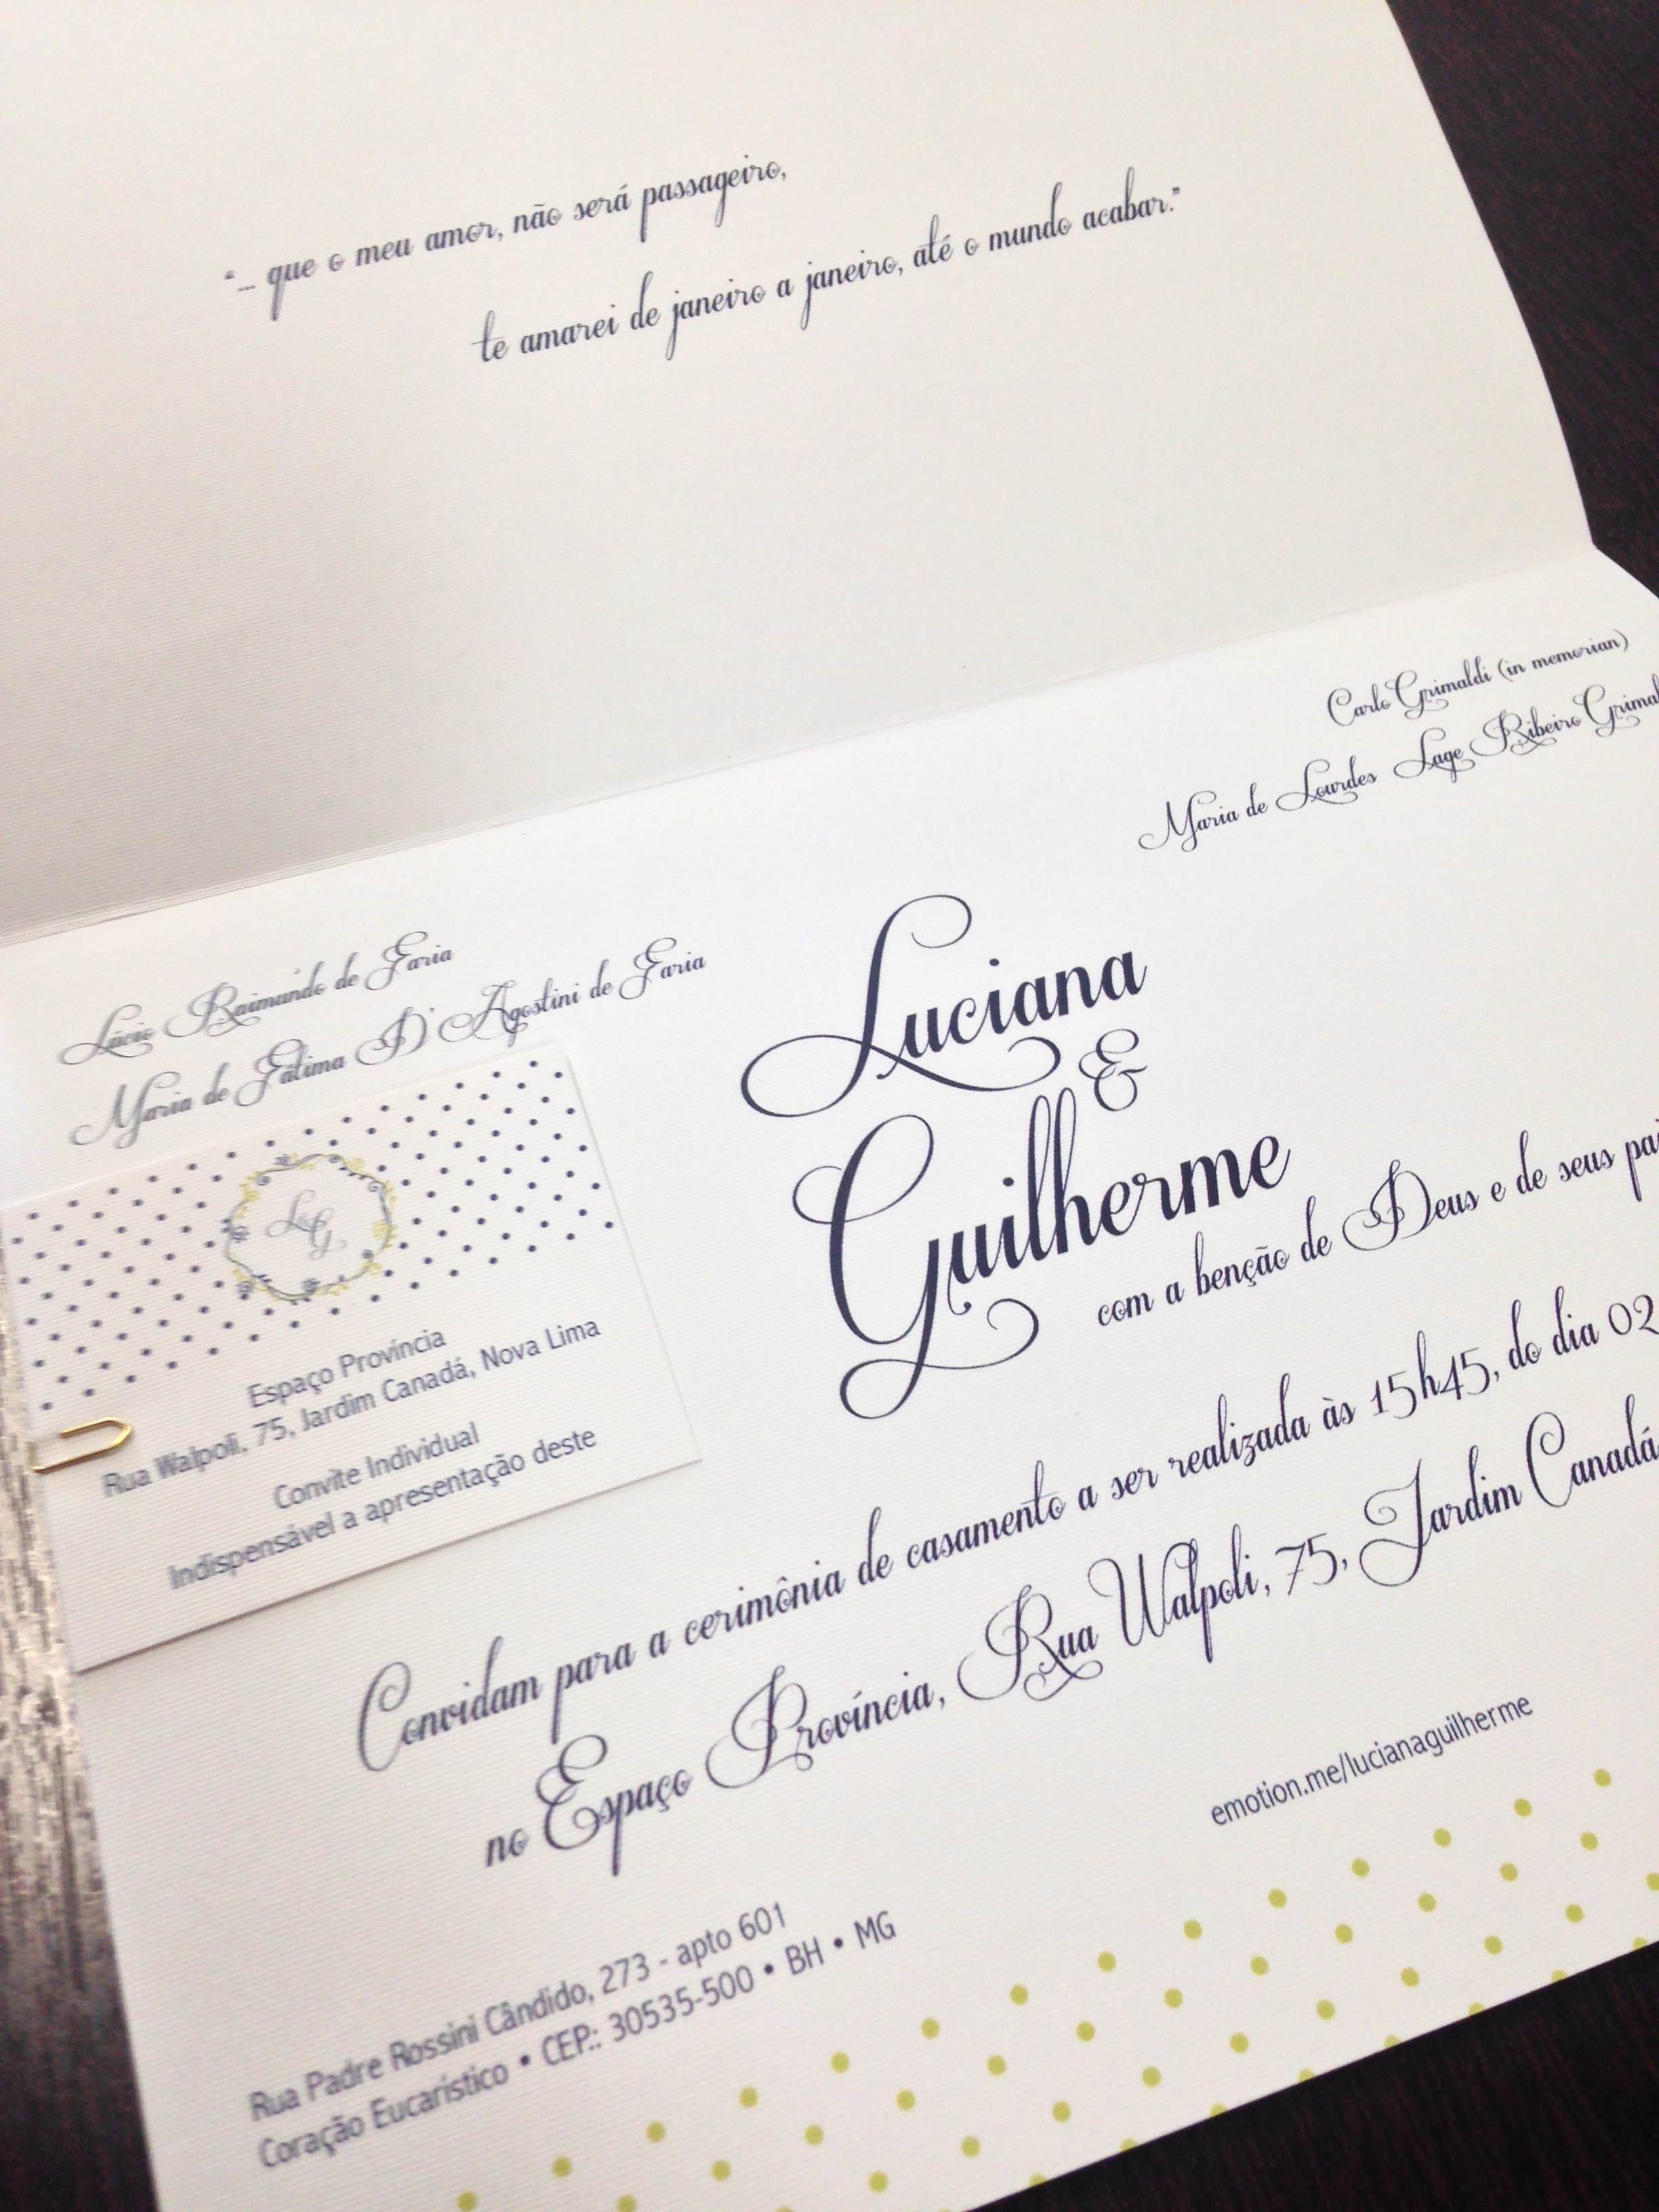 "... que o meu amor, não será passageiro,
te amarei de janeiro a janeiro, até o mundo acabar."
Carlo Grimaldi (in memorian)
Maria de Lourdes Lage Ribeiro
Lúcio Raimundo de Faria
Maria de Fátima D'Agostini de Faria
Luciana
&
Guilherme
com a benção de Deus e de seus
LG
Espaço Província
Rua Walpoli, 75, Jardim Canadá, Nova Lima
Convite Individual
Indispensável a apresentação deste
Convidam para a cerimônia de casamento a ser realizada às 15h45, do dia 02
no Espaço Província, Rua Walpoli, 75, Jardim Canadá
emotion.me/lucianaguilherme
Rua Padre Rossini Cândido, 273 - apto 601
Coração Eucarístico • CEP.: 30535-500 • BH • MG